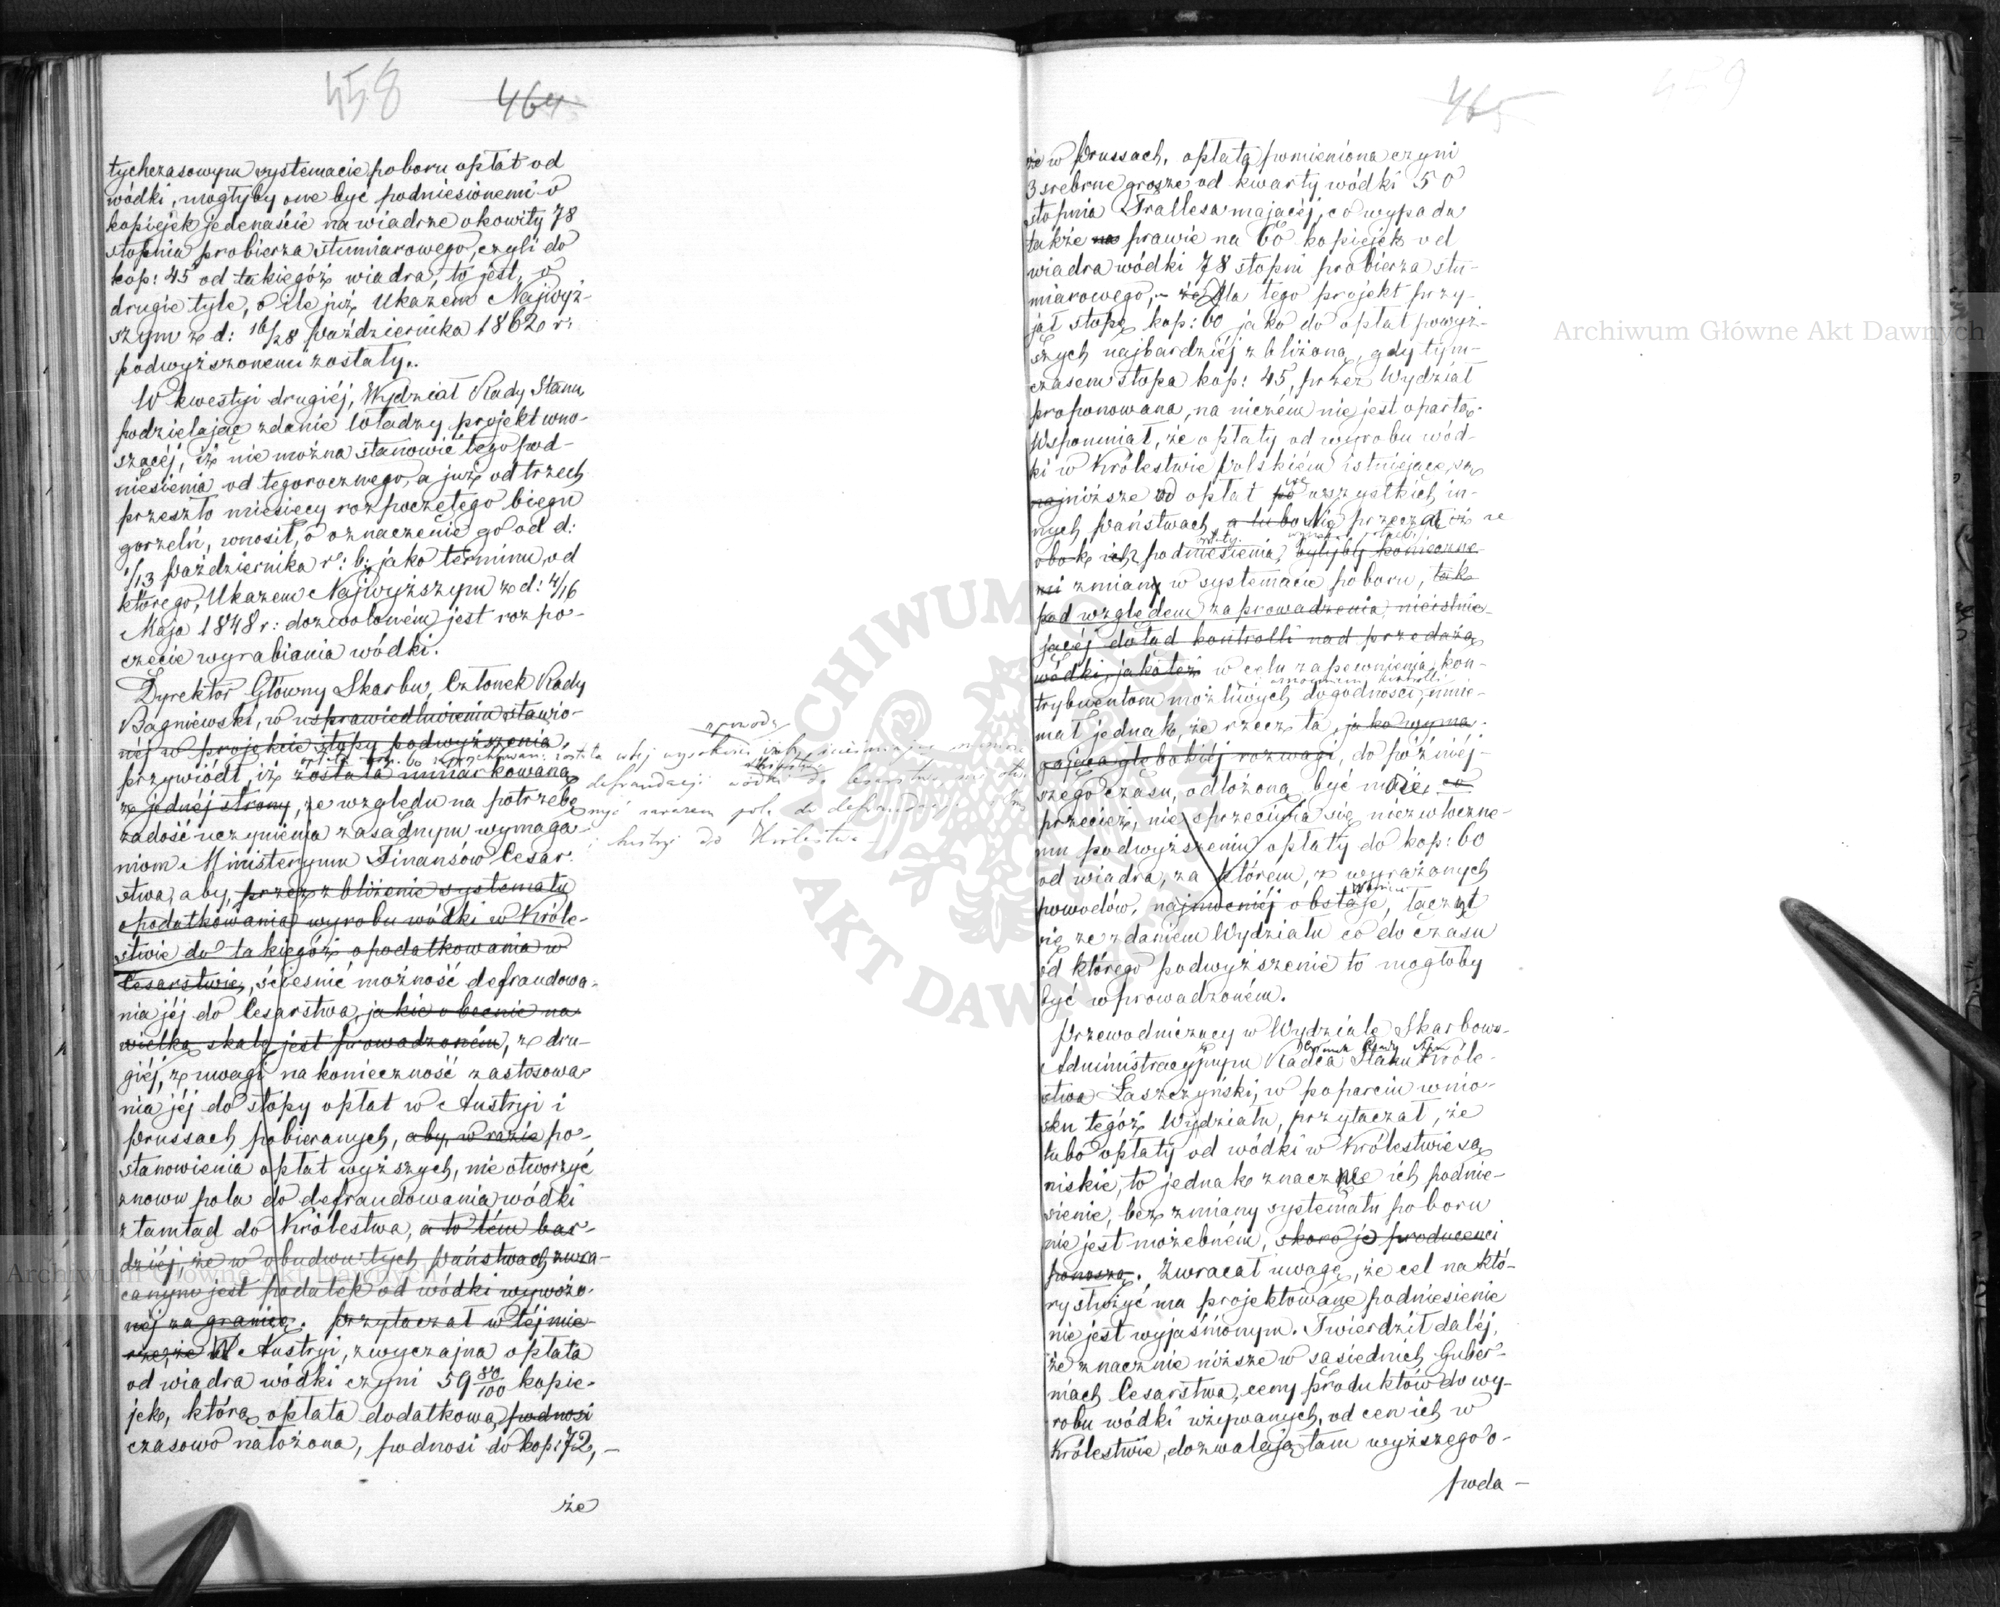 458 464
tychczasowym systemacie poboru opłat od
wódki, mogłyby one być podniesionemi o
kopiejek jedenaście na wiadrze okowity 78
stopnia probierza stumiarowego, czyli do
kop: 45 od takiegóż wiadra, to jest, o
drugie tyle, o ile już Ukazem Najwyż-
szym z d: 16/28 Października 1862 r:
podwyższonemi zostały.
W kwestyi drugiéj, Wydział Rady Stanu,
podzielając zdanie Władzy projekt wno-
szącéj, iż nie można stanowić tego pod-
niesienia od tegorocznego, a już od trzech
przeszło miesięcy rozpoczętego biegu
gorzelń, wnosił, o oznaczenie go od d:
1/13 Października r: b: jako terminu, od
którego, Ukazem Najwyższym z d: 4/16
Maja 1848 r: dozwolonem jest rozpo-
częcie wyrabiania wódki.
Dyrektor Główny Skarbu, Członek Rady
Bagniewski, w usprawiedliwieniu stawio-
nej w projekcie stopy podwyższenia,
przywiódł, iż została miarkowaną
z jednéj strony, ze względu na potrzebę
zadość uczynienia zasadnym wymaga-
niom Ministeryum Finansów Cesar-
stwa, aby, przez zbliżenie systematu
opodatkowania wyrobu wódki w Króle-
stwie do takiegóż opodatkowania w
Cesarstwie, ścieśnić możność defraudowa-
nia jéj do Cesarstwa, jakie obecnie na
wielką skalę jest prowadzoném, z dru-
giéj, z uwagi na konieczność zastosowa-
nia jéj do stopy opłat w Austryi i
Prussach pobieranych, aby, w razie po-
stanowienia opłat wyższych, nie otworzyć
znowu pola do defraudowania wódki
ztamtąd do Królestwa, a to tém bar-
dziéj, że w obudwu tych Państwach zwra-
canym jest podatek od wódki wywożo-
nej za granicę. Przytaczał w téj mie-
rze, że W Austryi, zwyczajna opłata
od wiadra wódki czyni 59 80/100 kopie-
jek, którą opłata dodatkowa podnosi
czasowo nałożona, podnosi do kop: 72,
że
defraudacyi wódki do Cesarstwa
pola do defraudacyi
do Królestwa
465 459
że w Prussach, opłata pomieniona czyni
3 srebrne grosze od kwarty wódki 50
stopnia Trallesa mającéj, co wypada
także na prawie na 60 kopiejek od
wiadra wódki 78 stopni probierza stu-
miarowego, że Dla tego projekt przy-
jął stopę kop: 60 jako do opłat powyż-
szych najbardziéj zbliżoną, gdy tym-
czasem stopa kop: 45, przez Wydział
proponowana, na niczém nie jest opartą.
Wspomniał, że opłaty od wyrobu wód-
ki w Królestwie Polskiém istniejące, są
najniższe od opłat po we wszystkich in-
nych Państwach, a lubo Nie przeczał iż
obok ich podniesienia, byłyby konieczne-
mi zmiany w systemacie poboru, tak
pod względem zaprowadzenia nieistnie-
jącéj dotąd kontrolli nad przedażą
wódki, jakoteż w celu zapewnienia kon-
trybuentom możliwych dogodności, mnie-
mał jednak, że rzecz ta, jako wyma-
gająca głębokiéj rozwagi, do późniéj-
szego czasu, odłożoną być może, co
przecież, nie sprzeciwia się niezwłoczne-
mu podwyższeniu opłaty do kop: 60
od wiadra, za którem, z wyrażonych
powodów, najmocniéj obstaje, łączył
się ze zdaniem Wydziału co do czasu
od którego podwyższenie to mogłoby
być wprowadzoném.
Przewodniczący w Wydziale Skarbowo-
Administracyjnym Radca Stanu Króle-
stwa Łaszczyński, w poparciu wnio-
sku tegóż Wydziału, przytaczał, że
lubo opłaty od wódki w Królestwie są
niskie, to jednak znaczne ich podnie-
sienie, bez zmiany systematu poboru
nie jest możebném, skoro je producenci
ponoszą. Zwracał uwagę, że cel na któ-
ry służyć ma projektowane podniesienie
nie jest wyjaśnionym. Twierdził daléj,
że znacznie niższe w sąsiednich Guber-
niach Cesarstwa, ceny produktów do wy-
robu wódki używanych, od cen ich w
Królestwie, dozwalają tam wyższego o-
poda-
Archiwum Główne Akt Dawnych
Archiwum Główne Akt Dawnych
ARCHIWUM GŁÓWNE AKT DAWNYCH